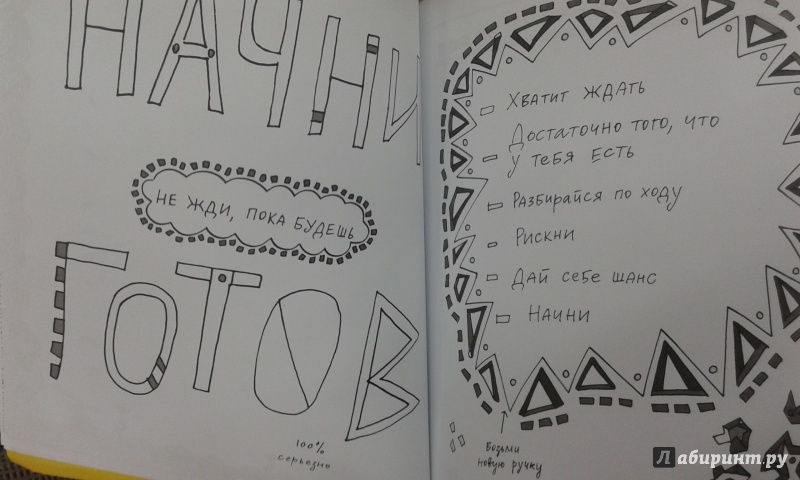 НАЧНИ
НЕ ЖДИ, ПОКА БУДЕШЬ
ГОТОВ
100%
серьезно
ХВАТИТ ЖДАТЬ
ДОСТАТОЧНО ТОГО, ЧТО
У ТЕБЯ ЕСТЬ
РАЗБИРАЙСЯ ПО ХОДУ
РИСКНИ
ДАЙ СЕБЕ ШАНС
НАЧНИ
Возьми
новую ручку
Лабиринт.ру